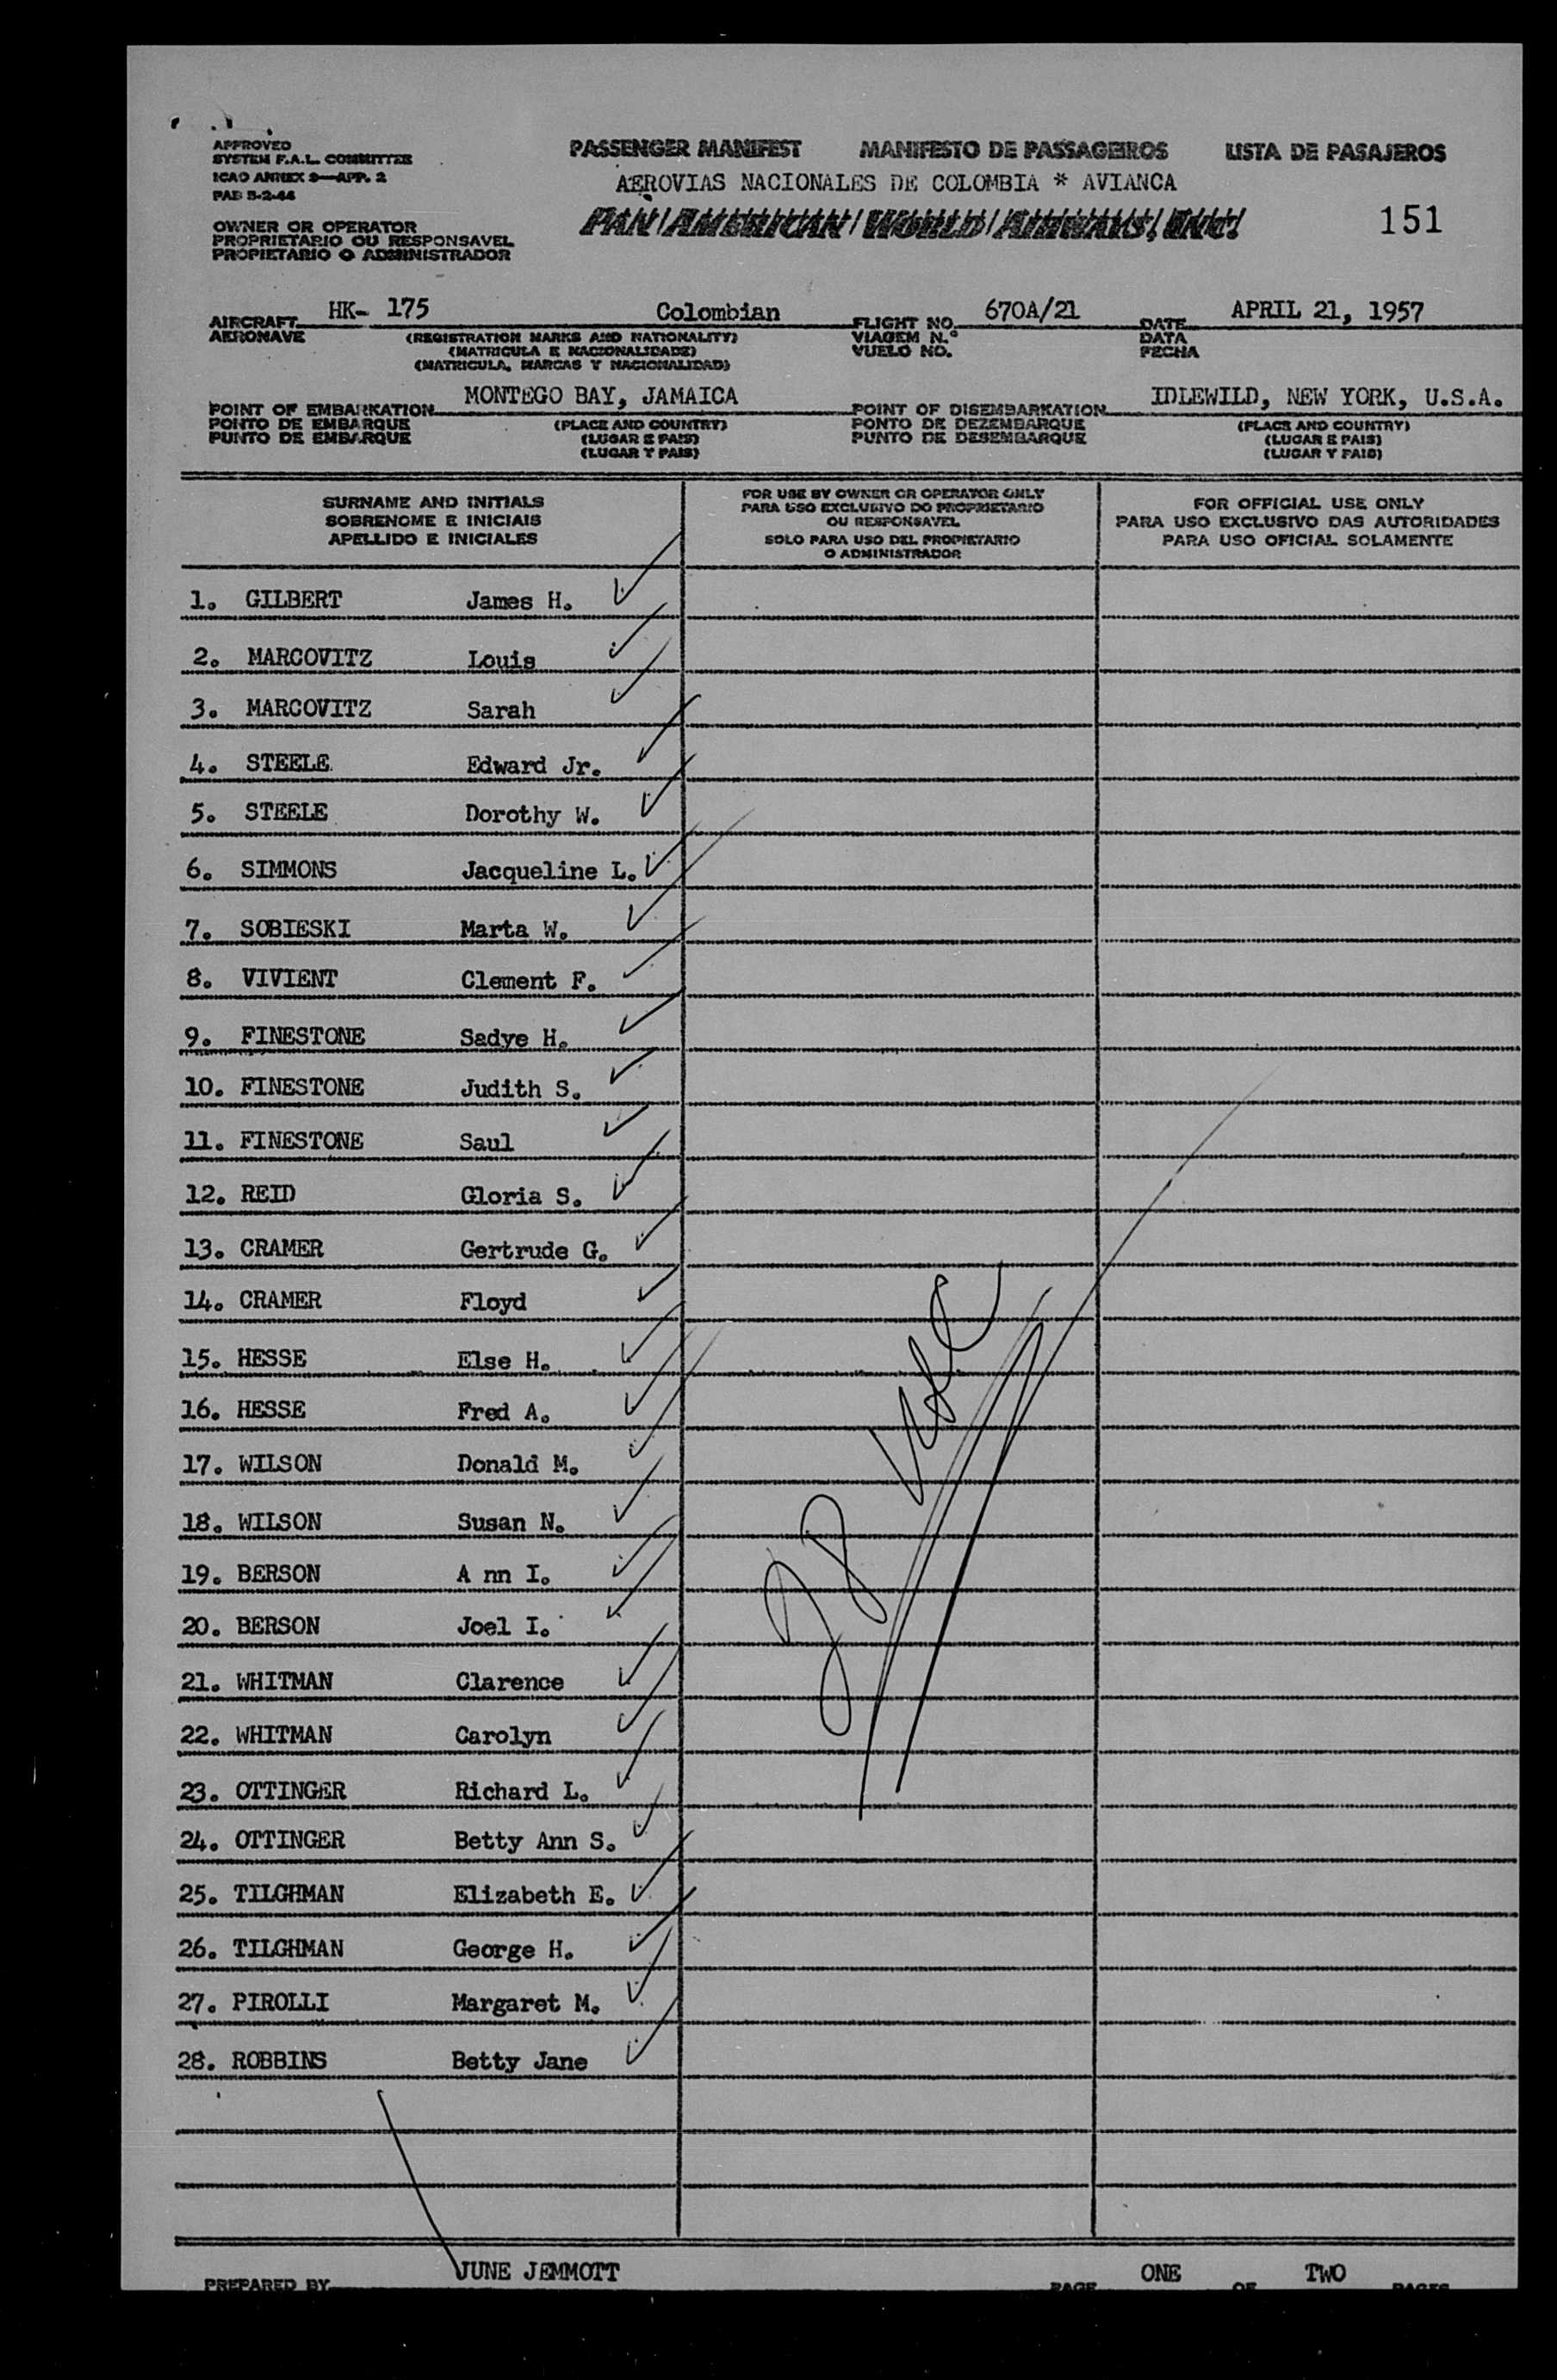 APPROVED
SYSTEM F.A.L. COMMITTEE
ICAO ANNEX 9—APP. 2
PAB 5-2-44
PASSENGER MANIFEST MANIFESTO DE PASSAGEIROS LISTA DE PASAJEROS
AEROVIAS NACIONALES DE COLOMBIA * AVIANCA
PAN AMERICAN WORLD AIRWAYS, INC.
151
OWNER OR OPERATOR
PROPRIETARIO OU RESPONSAVEL
PROPIETARIO O ADMINISTRADOR
AIRCRAFT HK- 175 Colombian FLIGHT NO. 670A/21 DATE APRIL 21, 1957
AERONAVE (REGISTRATION MARKS AND NATIONALITY) VIAGEM N.º DATA
(MATRICULA E NACIONALIDADE) VUELO NO. FECHA
(MATRICULA, MARCAS Y NACIONALIDAD)
POINT OF EMBARKATION MONTEGO BAY, JAMAICA POINT OF DISEMBARKATION IDLEWILD, NEW YORK, U.S.A.
PONTO DE EMBARQUE (PLACE AND COUNTRY) PONTO DE DEZEMBARQUE (PLACE AND COUNTRY)
PUNTO DE EMBARQUE (LUGAR E PAIS) PUNTO DE DESEMBARQUE (LUGAR E PAIS)
(LUGAR Y PAIS) (LUGAR Y PAIS)
SURNAME AND INITIALS
SOBRENOME E INICIAIS
APELLIDO E INICIALES
FOR USE BY OWNER OR OPERATOR ONLY
PARA USO EXCLUSIVO DO PROPRIETARIO
OU RESPONSAVEL
SOLO PARA USO DEL PROPIETARIO
O ADMINISTRADOR
FOR OFFICIAL USE ONLY
PARA USO EXCLUSIVO DAS AUTORIDADES
PARA USO OFICIAL SOLAMENTE
1. GILBERT James H.
2. MARCOVITZ Louis
3. MARCOVITZ Sarah
4. STEELE Edward Jr.
5. STEELE Dorothy W.
6. SIMMONS Jacqueline L.
7. SOBIESKI Marta W.
8. VIVIENT Clement F.
9. FINESTONE Sadye H.
10. FINESTONE Judith S.
11. FINESTONE Saul
12. REID Gloria S.
13. CRAMER Gertrude G.
14. CRAMER Floyd
15. HESSE Else H.
16. HESSE Fred A.
17. WILSON Donald M.
18. WILSON Susan N.
19. BERSON A nn I.
20. BERSON Joel I.
21. WHITMAN Clarence
22. WHITMAN Carolyn
23. OTTINGER Richard L.
24. OTTINGER Betty Ann S.
25. TILGHMAN Elizabeth E.
26. TILGHMAN George H.
27. PIROLLI Margaret M.
28. ROBBINS Betty Jane
PREPARED BY JUNE JEMMOTT PAGE ONE OF TWO PAGES